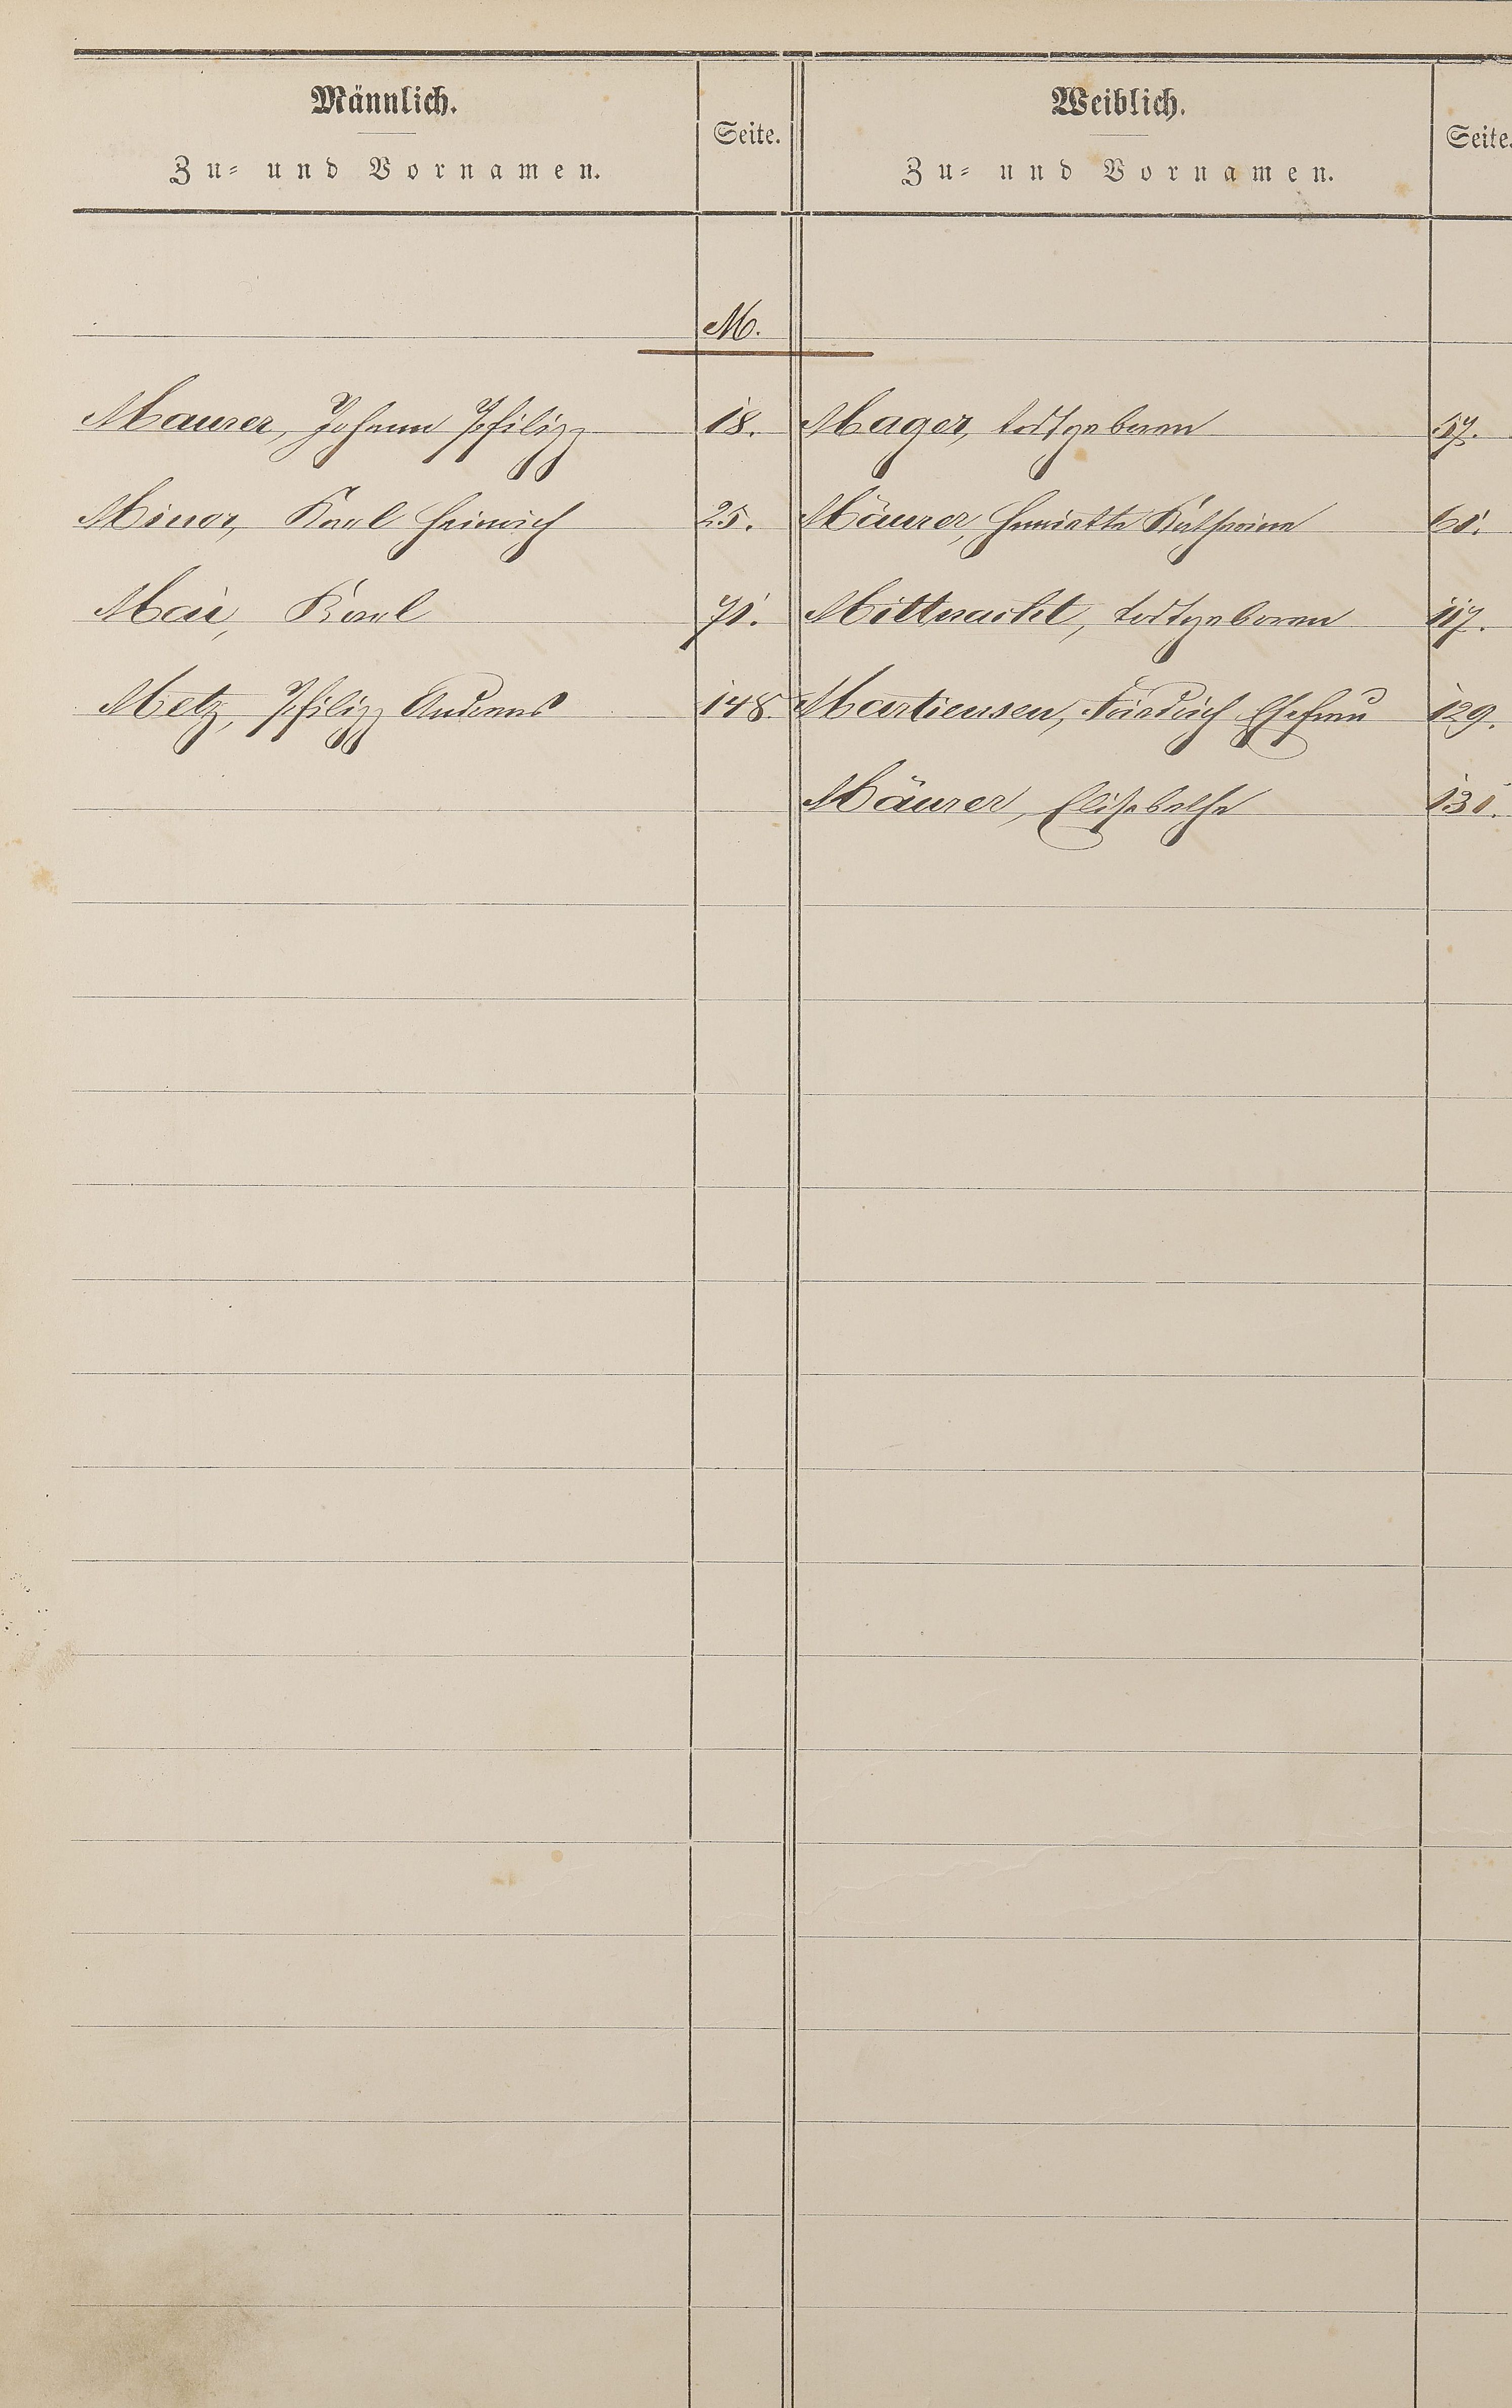 Männlich. Seite. Weiblich. Seite.
Zu- und Vornamen. Zu- und Vornamen.
M.
Maurer, Johann Philipp 18. Mager, todtgeboren 57.
Minor, Karl Heinrich 25. Mäurer, Henriette Katharina 61.
Mai, Karl 71. Mittnacht, todtgeboren 117.
Metz, Philipp Andreas 148. Martiensen, Friedrich Ehefrau 129.
Mäurer, Elisabethe 131.